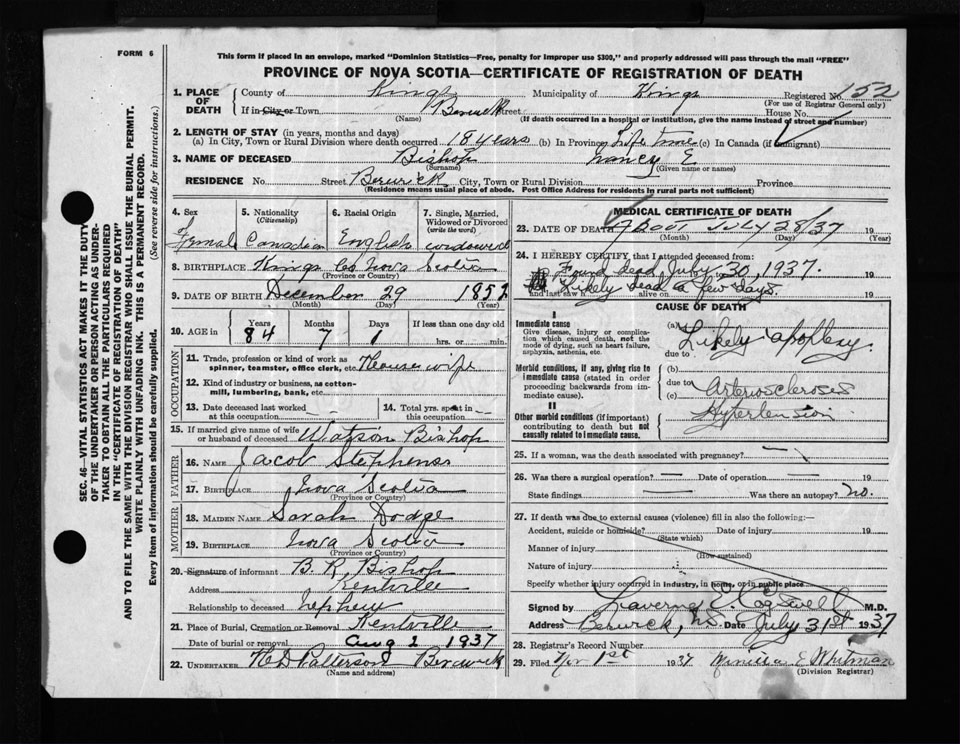 FORM 6
This form if placed in an envelope, marked "Dominion Statistics—Free, penalty for improper use $300," and properly addressed will pass through the mail "FREE"
PROVINCE OF NOVA SCOTIA—CERTIFICATE OF REGISTRATION OF DEATH
SEC. 46—VITAL STATISTICS ACT MAKES IT THE DUTY
OF THE UNDERTAKER OR PERSON ACTING AS UNDER-
TAKER TO OBTAIN ALL THE PARTICULARS REQUIRED
IN THE "CERTIFICATE OF REGISTRATION OF DEATH"
AND TO FILE THE SAME WITH THE DIVISION REGISTRAR WHO SHALL ISSUE THE BURIAL PERMIT.
WRITE PLAINLY WITH UNFADING INK. THIS IS A PERMANENT RECORD.
Every item of information should be carefully supplied. (See reverse side for instructions.)
1. PLACE OF DEATH
County of Kings Municipality of Kings Registered No. 152
(For use of Registrar General only)
If in City or Town Berwick Street House No.
(Name) (If death occurred in a hospital or institution, give the name instead of street and number)
2. LENGTH OF STAY (in years, months and days)
(a) In City, Town or Rural Division where death occurred 18 years (b) In Province Life time (c) In Canada (if immigrant)
3. NAME OF DECEASED Bishop Nancy E.
(Surname) (Given name or names)
RESIDENCE No. Street Berwick City, Town or Rural Division Province
(Residence means usual place of abode. Post Office Address for residents in rural parts not sufficient)
4. Sex 5. Nationality (Citizenship) 6. Racial Origin 7. Single, Married, Widowed or Divorced (write the word)
Female Canadian English widowed
8. BIRTHPLACE Kings Co Nova Scotia
(Province or Country)
9. DATE OF BIRTH December 29 1852
(Month) (Day) (Year)
10. AGE in Years Months Days If less than one day old
84 7 1 hrs. or min.
OCCUPATION
11. Trade, profession or kind of work as spinner, teamster, office clerk, etc. Housewife
12. Kind of industry or business, as cotton-mill, lumbering, bank, etc.
13. Date deceased last worked at this occupation — 14. Total yrs. spent in this occupation. —
15. If married give name of wife or husband of deceased Watson Bishop
FATHER
16. NAME Jacob Stephens
17. BIRTHPLACE Nova Scotia
(Province or Country)
MOTHER
18. MAIDEN NAME Sarah Dodge
19. BIRTHPLACE Nova Scotia
(Province or Country)
20. Signature of informant B. R. Bishop
Address Kentville
Relationship to deceased nephew
21. Place of Burial, Cremation or Removal Kentville
Date of burial or removal Aug 2 1937
22. UNDERTAKER Patterson Berwick
(Name and address)
MEDICAL CERTIFICATE OF DEATH
23. DATE OF DEATH About July 28/37 19
(Month) (Day) (Year)
24. I HEREBY CERTIFY, that I attended deceased from:
Found dead July 30, 1937. 19
Likely dead a few days.
and last saw h alive on 19
CAUSE OF DEATH
I
Immediate cause
Give disease, injury or complication which caused death, not the mode of dying, such as heart failure, asphyxia, asthenia, etc.
(a) Likely apoplexy.
due to
Morbid conditions, if any, giving rise to immediate cause (stated in order proceeding backwards from immediate cause).
(b)
due to
(c) Arteriosclerosis
II
Other morbid conditions (if important) contributing to death but not causally related to immediate cause.
Hypertension
25. If a woman, was the death associated with pregnancy? —
26. Was there a surgical operation? — Date of operation 19
State findings — Was there an autopsy? no.
27. If death was due to external causes (violence) fill in also the following:—
Accident, suicide or homicide? Date of injury 19
(State which)
Manner of injury
(How sustained)
Nature of injury
Specify whether injury occurred in industry, in home, or in public place
Signed by Cogswell M.D.
Address Berwick, N.S. Date July 31st 1937
28. Registrar's Record Number
29. Filed 1st 1937 Whitman
(Division Registrar)